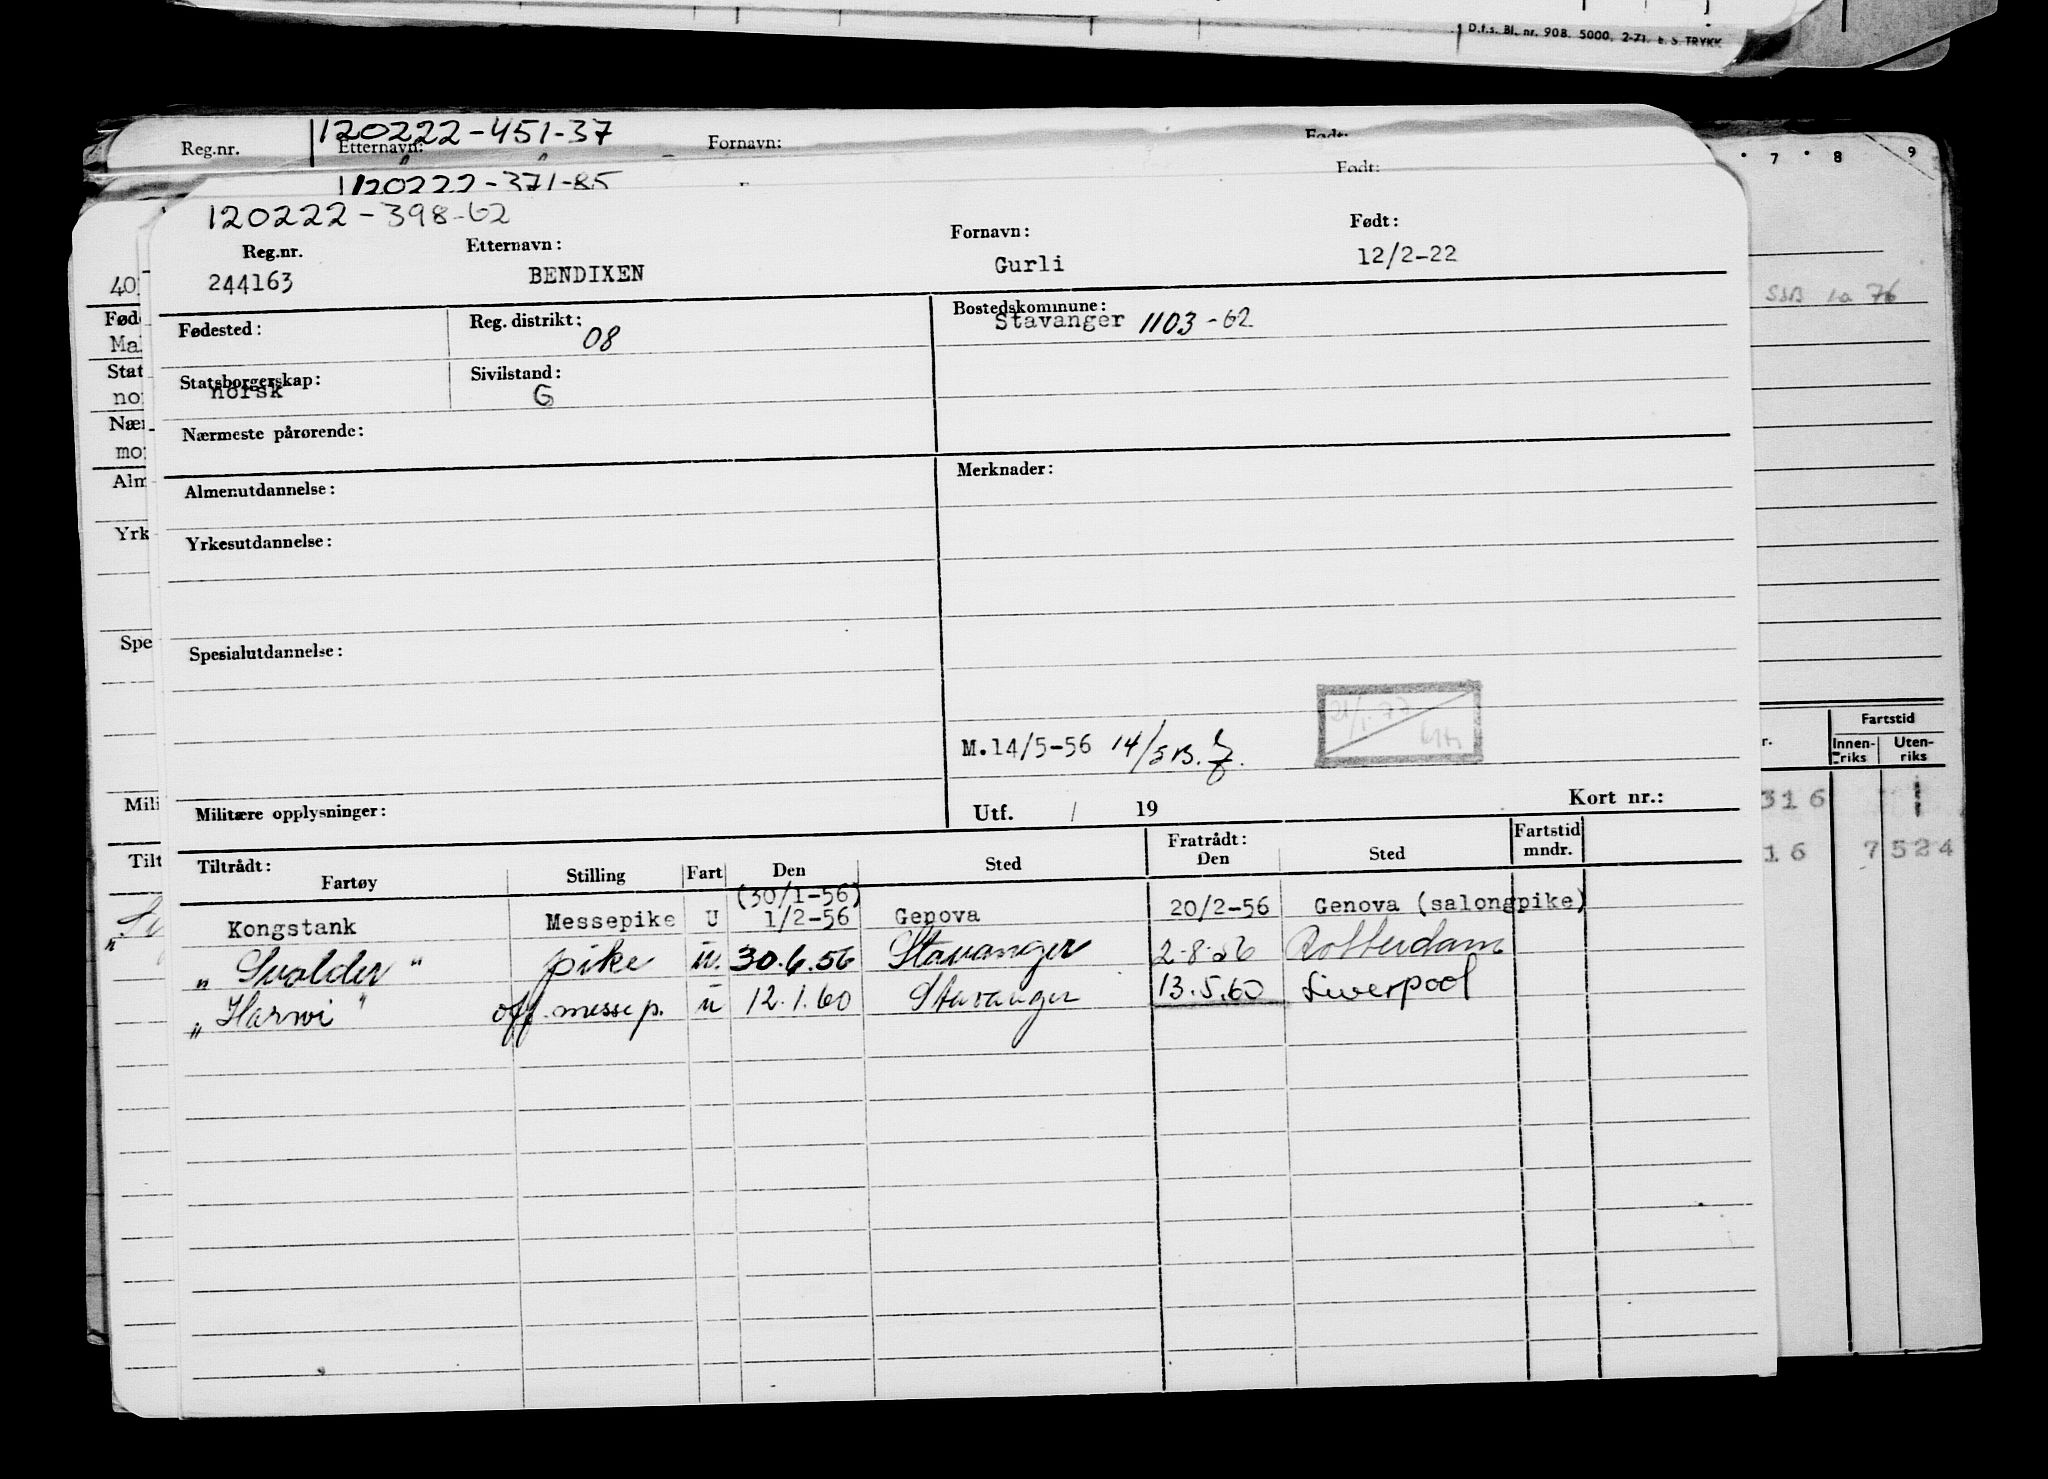 D.f.s. Bl. nr. 908. 5000. 2-71. E. S. TRYKK
120222-451-37
Reg.nr. Etternavn: Fornavn: Født:
120222-371-85 Født:
7 8 9
120222-398-62
Reg.nr. Etternavn: Fornavn: Født:
244163 BENDIXEN Gurli 12/2-22
SSB 1a 76
Fødested: Reg. distrikt: Bostedskommune:
08 Stavanger 1103-62
Statsborgerskap: Sivilstand:
norsk G
Nærmeste pårørende:
Almenutdannelse: Merknader:
Yrkesutdannelse:
Spesialutdannelse:
21/1.77
M.14/5-56 14/5 B.
Militære opplysninger: Utf. / 19 Kort nr.:
Fartstid
Innen-riks Uten-riks
316
16 7524
Tiltrådt: Fratrådt: Fartstid
Fartøy Stilling Fart Den Sted Den Sted mndr.
(30/1-56)
Kongstank Messepike U 1/2-56 Genova 20/2-56 Genova (salongpike)
„ Svolder " pike u. 30.6.56 Stavanger 2.8.56 Rotterdam
„ Harwi " off. messep. u 12.1.60 Stavanger 13.5.60 Liverpool